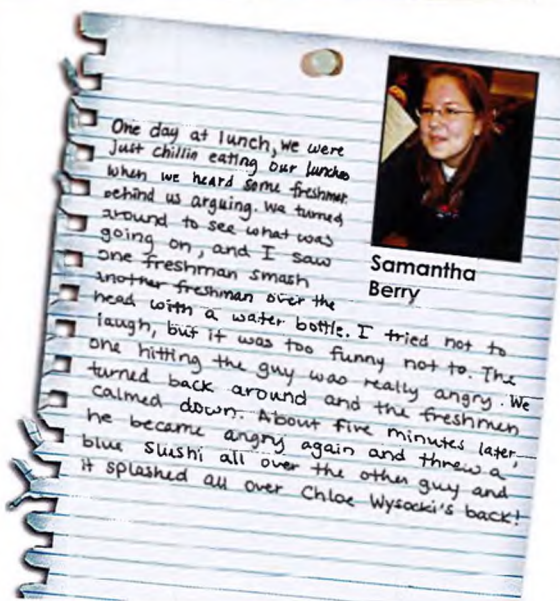 One day at lunch, we were
just chillin eating our lunches
when we heard some freshmen
behind us arguing. We turned
around to see what was
going on, and I saw
one freshman smash
another freshman over the
head with a water bottle. I tried not to
laugh, but it was too funny not to. The
one hitting the guy was really angry. We
turned back around and the freshmen
calmed down. About five minutes later,
he became angry again and threw a
blue slushi all over the other guy and
it splashed all over Chloe Wysocki's back!
Samantha
Berry